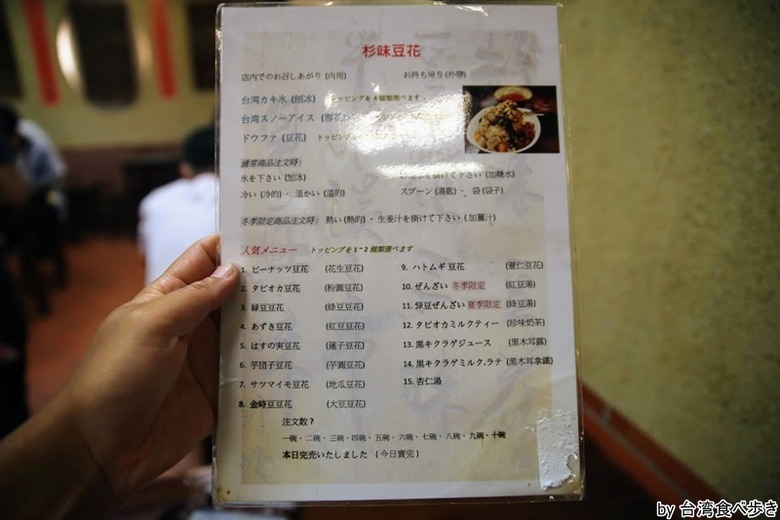 杉味豆花
店内でのお召しあがり (内用) お持ち帰り (外帶)
台湾カキ氷 (刨冰) トッピングを4種類選べます。
台湾スノーアイス (雪花
ドウファ (豆花) トッピング
通常商品注文時:
氷を下さい (加冰) 掛けて下さい (加糖水)
冷い (冷的)・ 温かい (溫的) スプーン (湯匙)・ 袋 (袋子)
冬季限定商品注文時: 熱い (熱的)・生姜汁を掛けて下さい (加薑汁)
人気メニュー トッピングを1~2種類選べます
1. ピーナッツ豆花 (花生豆花)
2. タピオカ豆花 (粉圓豆花)
3. 緑豆豆花 (綠豆豆花)
4. あずき豆花 (紅豆豆花)
5. はすの実豆花 (蓮子豆花)
6. 芋団子豆花 (芋圓豆花)
7. サツマイモ豆花 (地瓜豆花)
8. 金時豆豆花 (大豆豆花)
9. ハトムギ豆花 (薏仁豆花)
10. ぜんざい 冬季限定 (紅豆湯)
11. 緑豆ぜんざい 夏季限定 (綠豆湯)
12. タピオカミルクティー (珍味奶茶)
13. 黒キクラゲジュース (黑木耳露)
14. 黒キクラゲミルク.ラテ (黑木耳拿鐵)
15. 杏仁湯
注文数?
一碗、二碗、三碗、四碗、五碗、六碗、七碗、八碗、九碗、十碗
本日完売いたしました (今日賣完)
by 台湾食べ歩き